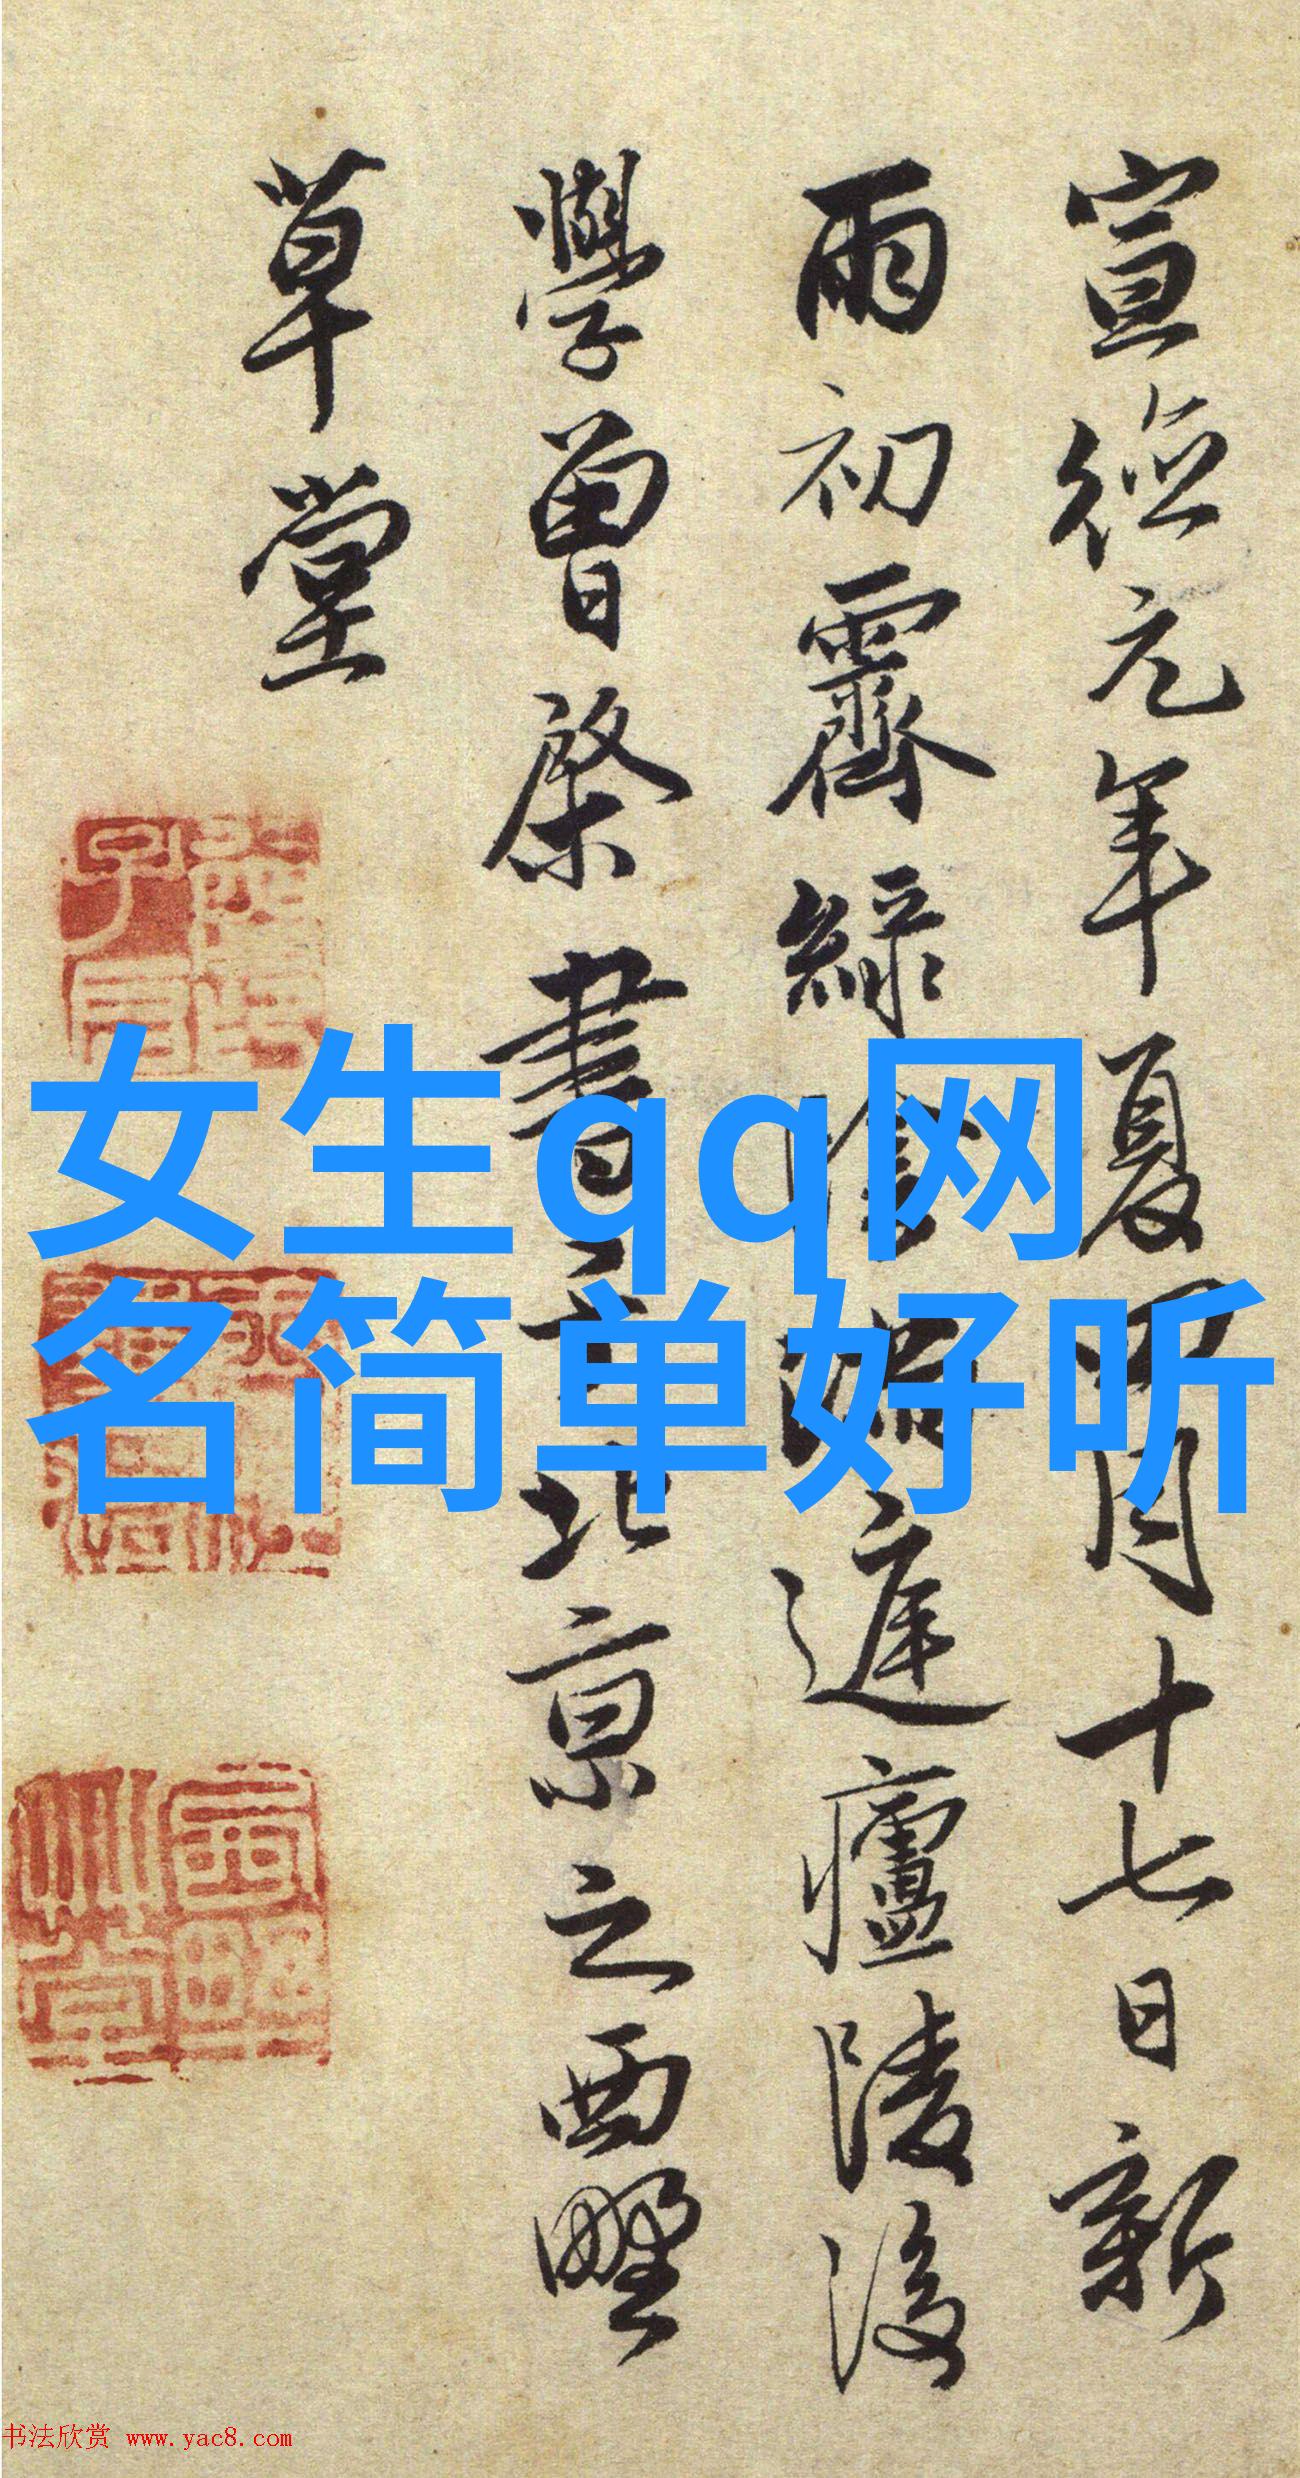 宣德元年夏四月十七日新
雨初霽綠陰滿庭廬陵後
學曾棨書于北京之西墅
草堂
女生qq网
名简单好听
书法欣赏 www.yac8.com